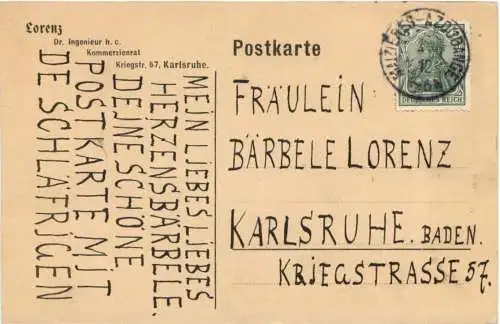 Lorenz
Dr. Ingenieur h. c.
Kommerzienrat
Kriegstr. 67, Karlsruhe.
MEIN LIEBES LIEBES
HERZENSBÄRBELE.
DEINE SCHÖNE
POSTKARTE MIT
DE SCHLÄFRIGEN
Postkarte
DEUTSCHES REICH
FRÄULEIN
BÄRBELE LORENZ
KARLSRUHE. BADEN.
KRIEGSTRASSE 57.